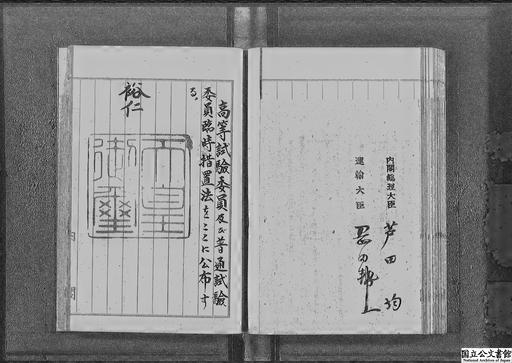 内閣總理大臣 芦田均
運輸大臣
高等試驗委員及び普通試驗
委員臨時措置法をここに公布す
る。
裕仁
天皇
御璽
国立公文書館
National Archives of Japan